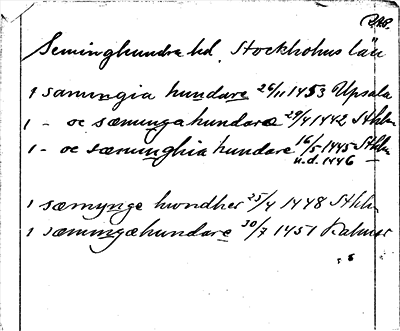 Seminghundra hd. Stockholms län
1 samingia hundare 26/11 1453 Upsala
1 - oc sæmingahundaræ 29/4 1442 Sthlm
1 - oc særninghia hundare 16/5 1445 Sthlm
u.d. 1446
1 sæmynge hwndher 25/4 1448 Sthlm
1 sæmingæhundare 30/7 1451 Kalmar